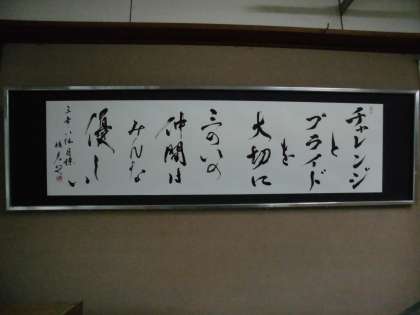 チャレンジ
と
プライド
を
大切に
三のいの
仲間は
みんな
優しい